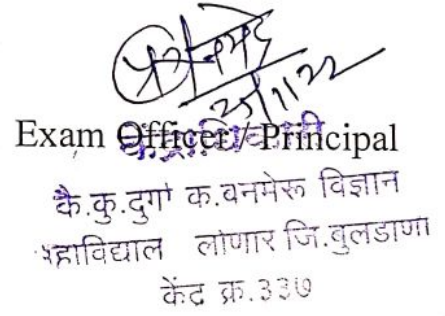 25/11/22
Exam Officer / Principal
कै.कु.दुर्गा क.बनमेरू विज्ञान
महाविद्याल लोणार जि.बुलडाणा
केंद्र क्र.३३७